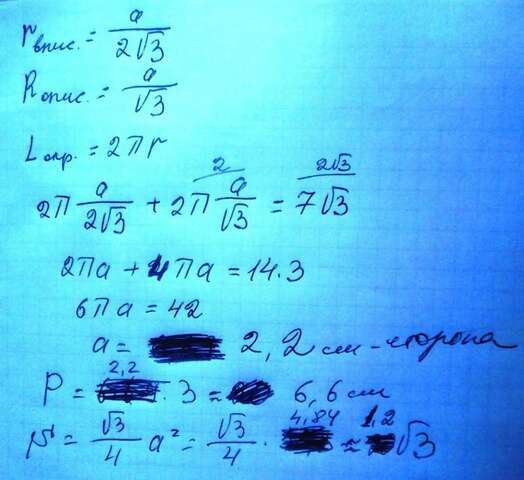 rвпис. = a/2√3
Rопис. = a/√3
Lокр. = 2πr
2π a/2√3 + 2π a/√3 = 7√3
2 2√3
2πa + 4πa = 14.3
6πa = 42
a = 2,2 см - сторона
P = 2,2 . 3 = 6,6 см
S = √3/4 a² = √3/4 . 4,84 ≈ 1,2√3